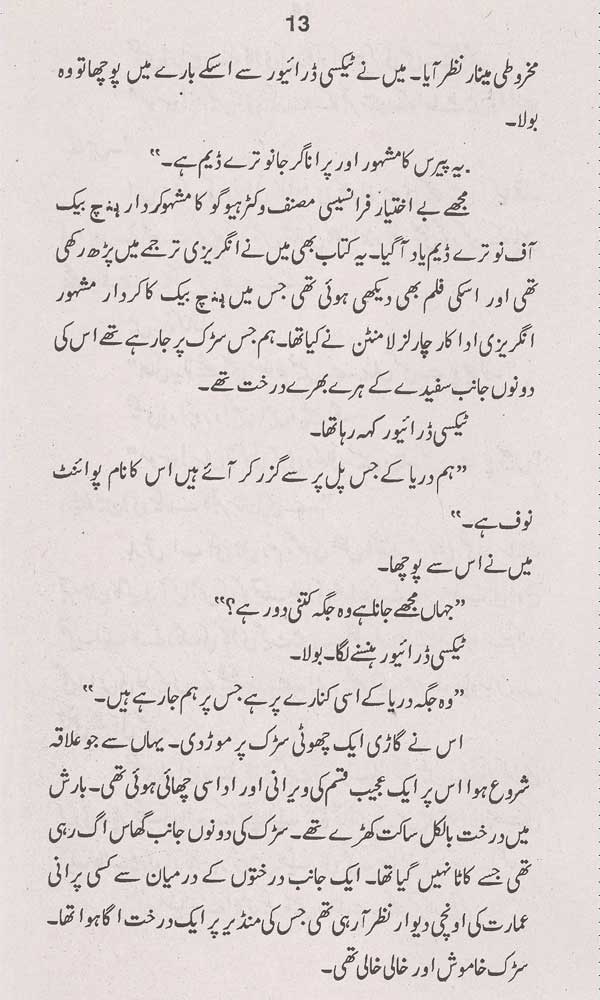 13
مخروطی مینار نظر آیا۔ میں نے ٹیکسی ڈرائیور سے اسکے بارے میں پوچھا تو وہ
بولا۔
.یہ پیرس کا مشہور اور پرانا گرجا نوترے ڈیم ہے۔“
مجھے بے اختیار فرانسیسی مصنف وکٹر ہیوگو کا مشہو کردار ہنچ بیک
آف نوترے ڈیم یاد آ گیا۔ یہ کتاب بھی میں نے انگریزی ترجمے میں پڑھ رکھی
تھی اور اسکی فلم بھی دیکھی ہوئی تھی جس میں ہنچ بیک کا کردار مشہور
انگریزی اداکار چارلز لامنٹن نے کیا تھا۔ ہم جس سڑک پر جا رہے تھے اس کی
دونوں جانب سفیدے کے ہرے بھرے درخت تھے۔
ٹیکسی ڈرائیور کہہ رہا تھا۔
”ہم دریا کے جس پل پر سے گزر کر آئے ہیں اس کا نام پوائنٹ
نوف ہے۔“
میں نے اس سے پوچھا۔
”جہاں مجھے جانا ہے وہ جگہ کتنی دور ہے؟“
ٹیکسی ڈرائیور ہنسنے لگا۔ بولا۔
”وہ جگہ دریا کے اسی کنارے پر ہے جس پر ہم جا رہے ہیں۔“
اس نے گاڑی ایک چھوٹی سڑک پر موڑ دی۔ یہاں سے جو علاقہ
شروع ہوا اس پر ایک عجیب قسم کی ویرانی اور اداسی چھائی ہوئی تھی۔ بارش
میں درخت بالکل ساکت کھڑے تھے۔ سڑک کی دونوں جانب گھاس اگ رہی
تھی جسے کاٹا نہیں گیا تھا۔ ایک جانب درختوں کے درمیان سے کسی پرانی
عمارت کی اونچی دیوار نظر آ رہی تھی جس کی منڈیر پر ایک درخت اگا ہوا تھا۔
سڑک خاموش اور خالی خالی تھی۔